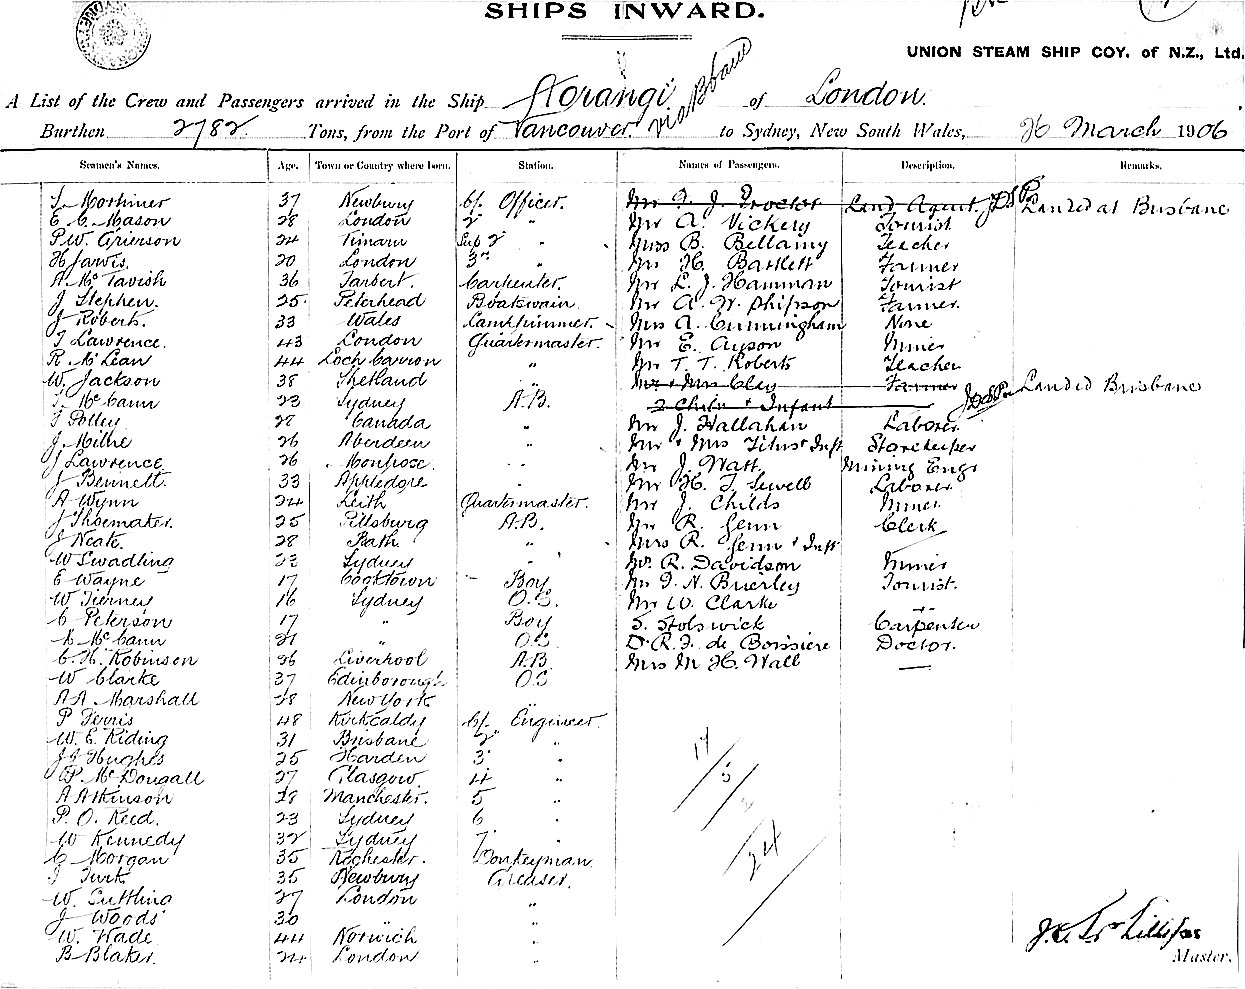 SHIPS INWARD.
UNION STEAM SHIP COY. of N.Z., Ltd.
A List of the Crew and Passengers arrived in the Ship Aorangi of London.
Burthen 2782 Tons, from the Port of Vancouver via Bbane to Sydney, New South Wales, 26 March 1906
Seamen's Names. Age. Town or Country where Born. Station. Names of Passengers. Description. Remarks.
T. Mortimer 37 Newbury Cf. Officer. Mr F. J. Proctor Land Agent. Landed at Brisbane
E. C. Mason 28 London 2 " Mr A. Vickery Tourist
P.W. Grierson 24 Timaru Sup 2 " Miss B. Bellamy Teacher
H Jarvis. 20 London 3rd " Mr H. Bartlett Farmer
A. McTavish 36 Tarbert. Carpenter. Mr L. J. Hamman Tourist
J Stephen. 25 Peterhead Boatswain Mr A. W. Phipson Farmer.
J Roberts. 33 Wales Lamptrimmer. Mrs A. Cunningham None
T Lawrence. 43 London Quartermaster. Mr E. Ayson Miner
R. McLean 44 Loch Carron " Mr T. T. Roberts Teacher
W. Jackson 38 Shetland " Mr & Mrs Cley Farmer Landed Brisbane
T. McCann 23 Sydney A.B. 2 Childn & Infant
T Polley 28 Canada " Mr J. Hallahan Laborer
J. Milne 26 Aberdeen " Mr & Mrs Titus & Inft Storekeeper
J Lawrence 26 Montrose. " Mr J. Watt Mining Engr
J Bennett. 33 Appledore " Mr H. T. Sewell Laborer
A Wynn 24 Leith Quartermaster. Mr J. Childs Miner
J Shoemaker. 25 Pittsburg A.B. Mr R. Jenn Clerk
J Neate. 28 Bath. " Mrs R. Jenn & Inft
W Swadling 23 Sydney " Mr. R. Davidson Miner
E Wayne 17 Cooktown Boy Mr F. N. Brierley Tourist.
W Tierney 16 Sydney O.S. Mr W. Clarke
C Peterson 17 " Boy S. Stolswick Carpenter
McCann 21 " O.S. Dr R. F. de Boissiere Doctor.
C. H. Robinson 26 Liverpool A.B. Mrs M H. Wall
W Clarke 37 Edinborough O.S
A A Marshall 28 New York "
P Ferris 48 Kirkcaldy Cf. Engineer.
W. E. Riding 31 Brisbane 2 "
J J Hughes 25 Harden 3 "
P. McDougall 27 Glasgow. 4 "
A Atkinson 28 Manchester. 5 "
P. O. Reed. 23 Sydney 6 "
W Kennedy 32 Sydney 7
C. Morgan 35 Rochester. Donkeyman.
J Turk 35 Newbury Greaser.
W. 27 London "
J Woods 30 " "
W. Wade 44 Norwich "
B Blaker. 24 London "
24
Master.